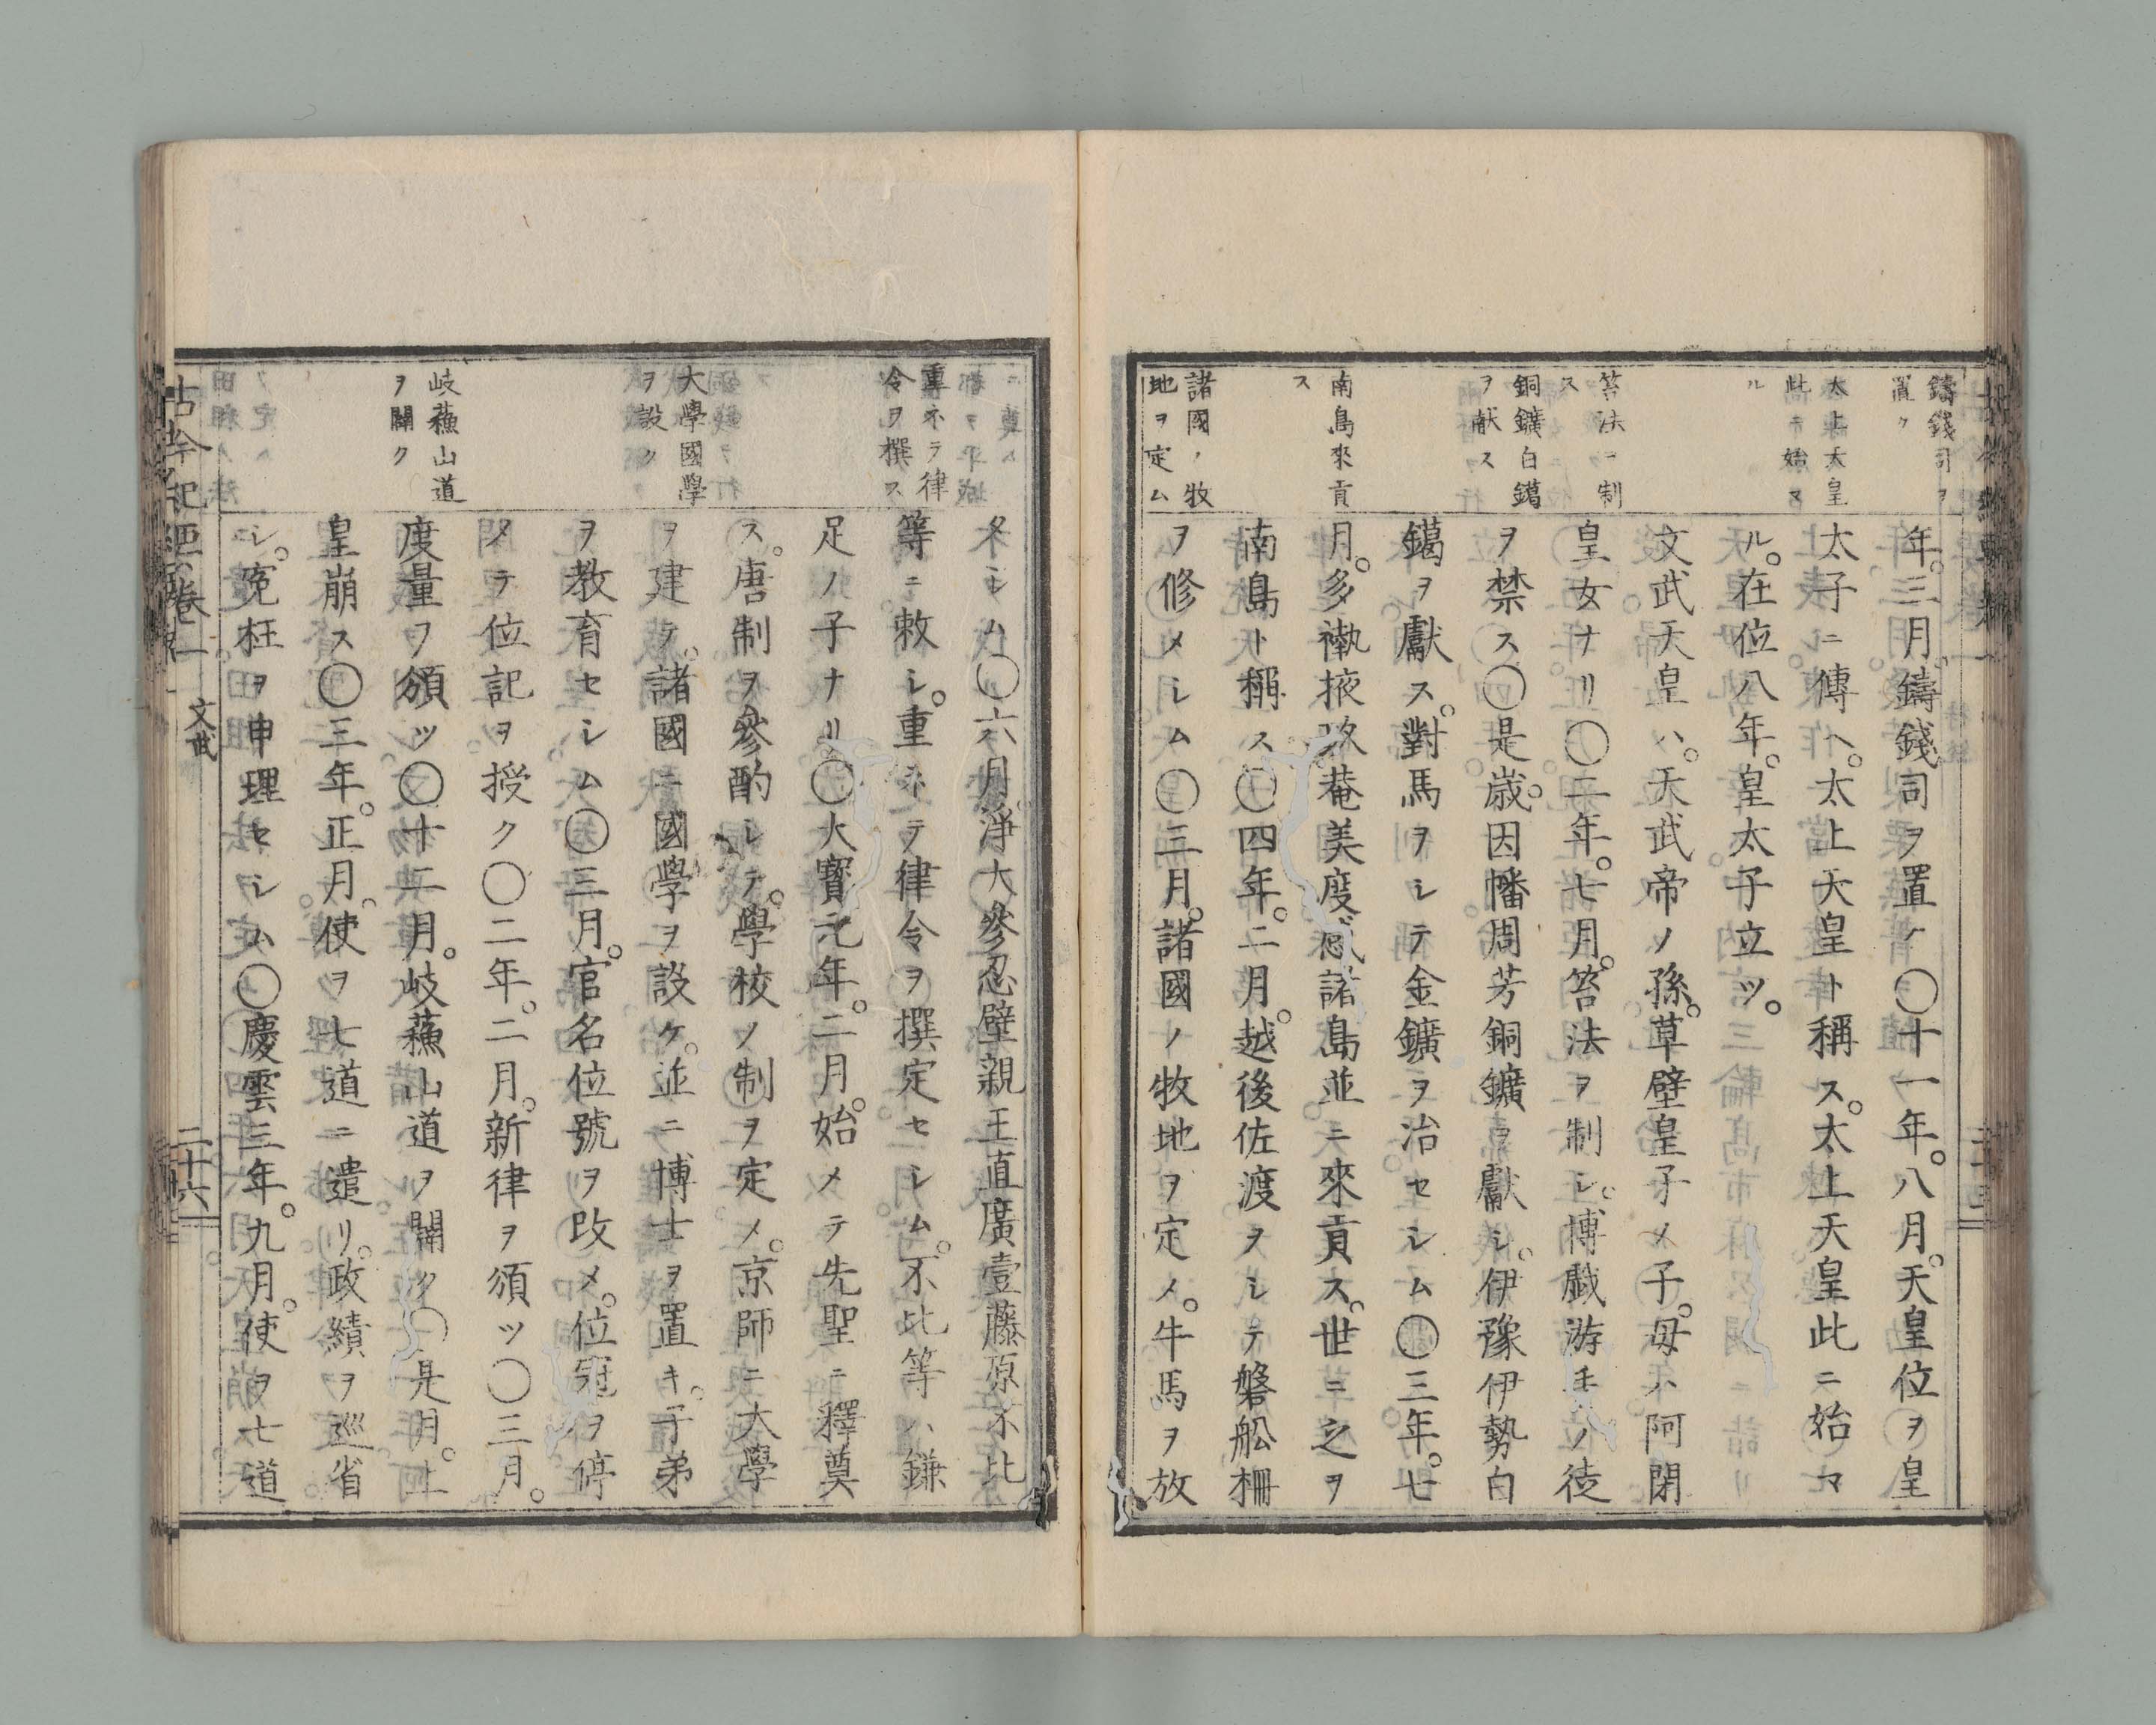 鑄錢司ヲ
置ク
太上天皇
此ニ始マ
ル
笞法ヲ制
ス
銅鑛白鑞
ヲ献ス
南島來貢
ス
諸國ノ牧
地ヲ定ム
年。三月。鑄錢司ヲ置ク〇十一年。八月。天皇位ヲ皇
太子ニ傳ヘ。太上天皇ト稱ス。太上天皇此ニ始マ
ル。在位八年。皇太子立ツ。
文武天皇ハ。天武帝ノ孫。草壁皇子ノ子。母ハ阿閉
皇女ナリ〇二年。七月。笞法ヲ制シ。博戯游手ノ徒
ヲ禁ス〇是歳。因幡周芳銅鑛ヲ獻シ。伊豫伊勢白
鑞ヲ獻ス。對馬ヲシテ金鑛ヲ冶セシム〇三年。七
月。多褹掖玖菴美度感諸島並ニ來貢ス。世ニ之ヲ
南島ト稱ス〇四年。二月。越後佐渡ヲシテ磐舩柵
ヲ修メシム〇三月。諸國ノ牧地ヲ定メ。牛馬ヲ放
重ネテ律
令ヲ撰ス
大學國學
ヲ設ク
岐蘓山道
ヲ開ク
タシム〇六月。淨大參忍壁親王直廣壹藤原不比
等ニ敕シ。重ネテ律令ヲ撰定セシム。不比等ハ鎌
足ノ子ナリ〇大寳元年。二月。始メテ先聖ニ釋奠
ス。唐制ヲ參酌シテ。學校ノ制ヲ定メ。京師ニ大學
ヲ建テ。諸國ニ國學ヲ設ケ。並ニ博士ヲ置キ。子弟
ヲ教育セシム〇三月。官名位號ヲ改メ。位冠ヲ停
メテ位記ヲ授ク〇二年。二月。新律ヲ頒ツ〇三月。
度量ヲ頒ツ〇十二月。岐蘓山道ヲ開ク〇是月。上
皇崩ス〇三年。正月。使ヲ七道ニ遣リ。政績ヲ巡省
シ。寃枉ヲ申理セシム〇慶雲三年。九月。使ヲ七道
古今紀要卷一
文武
二十六